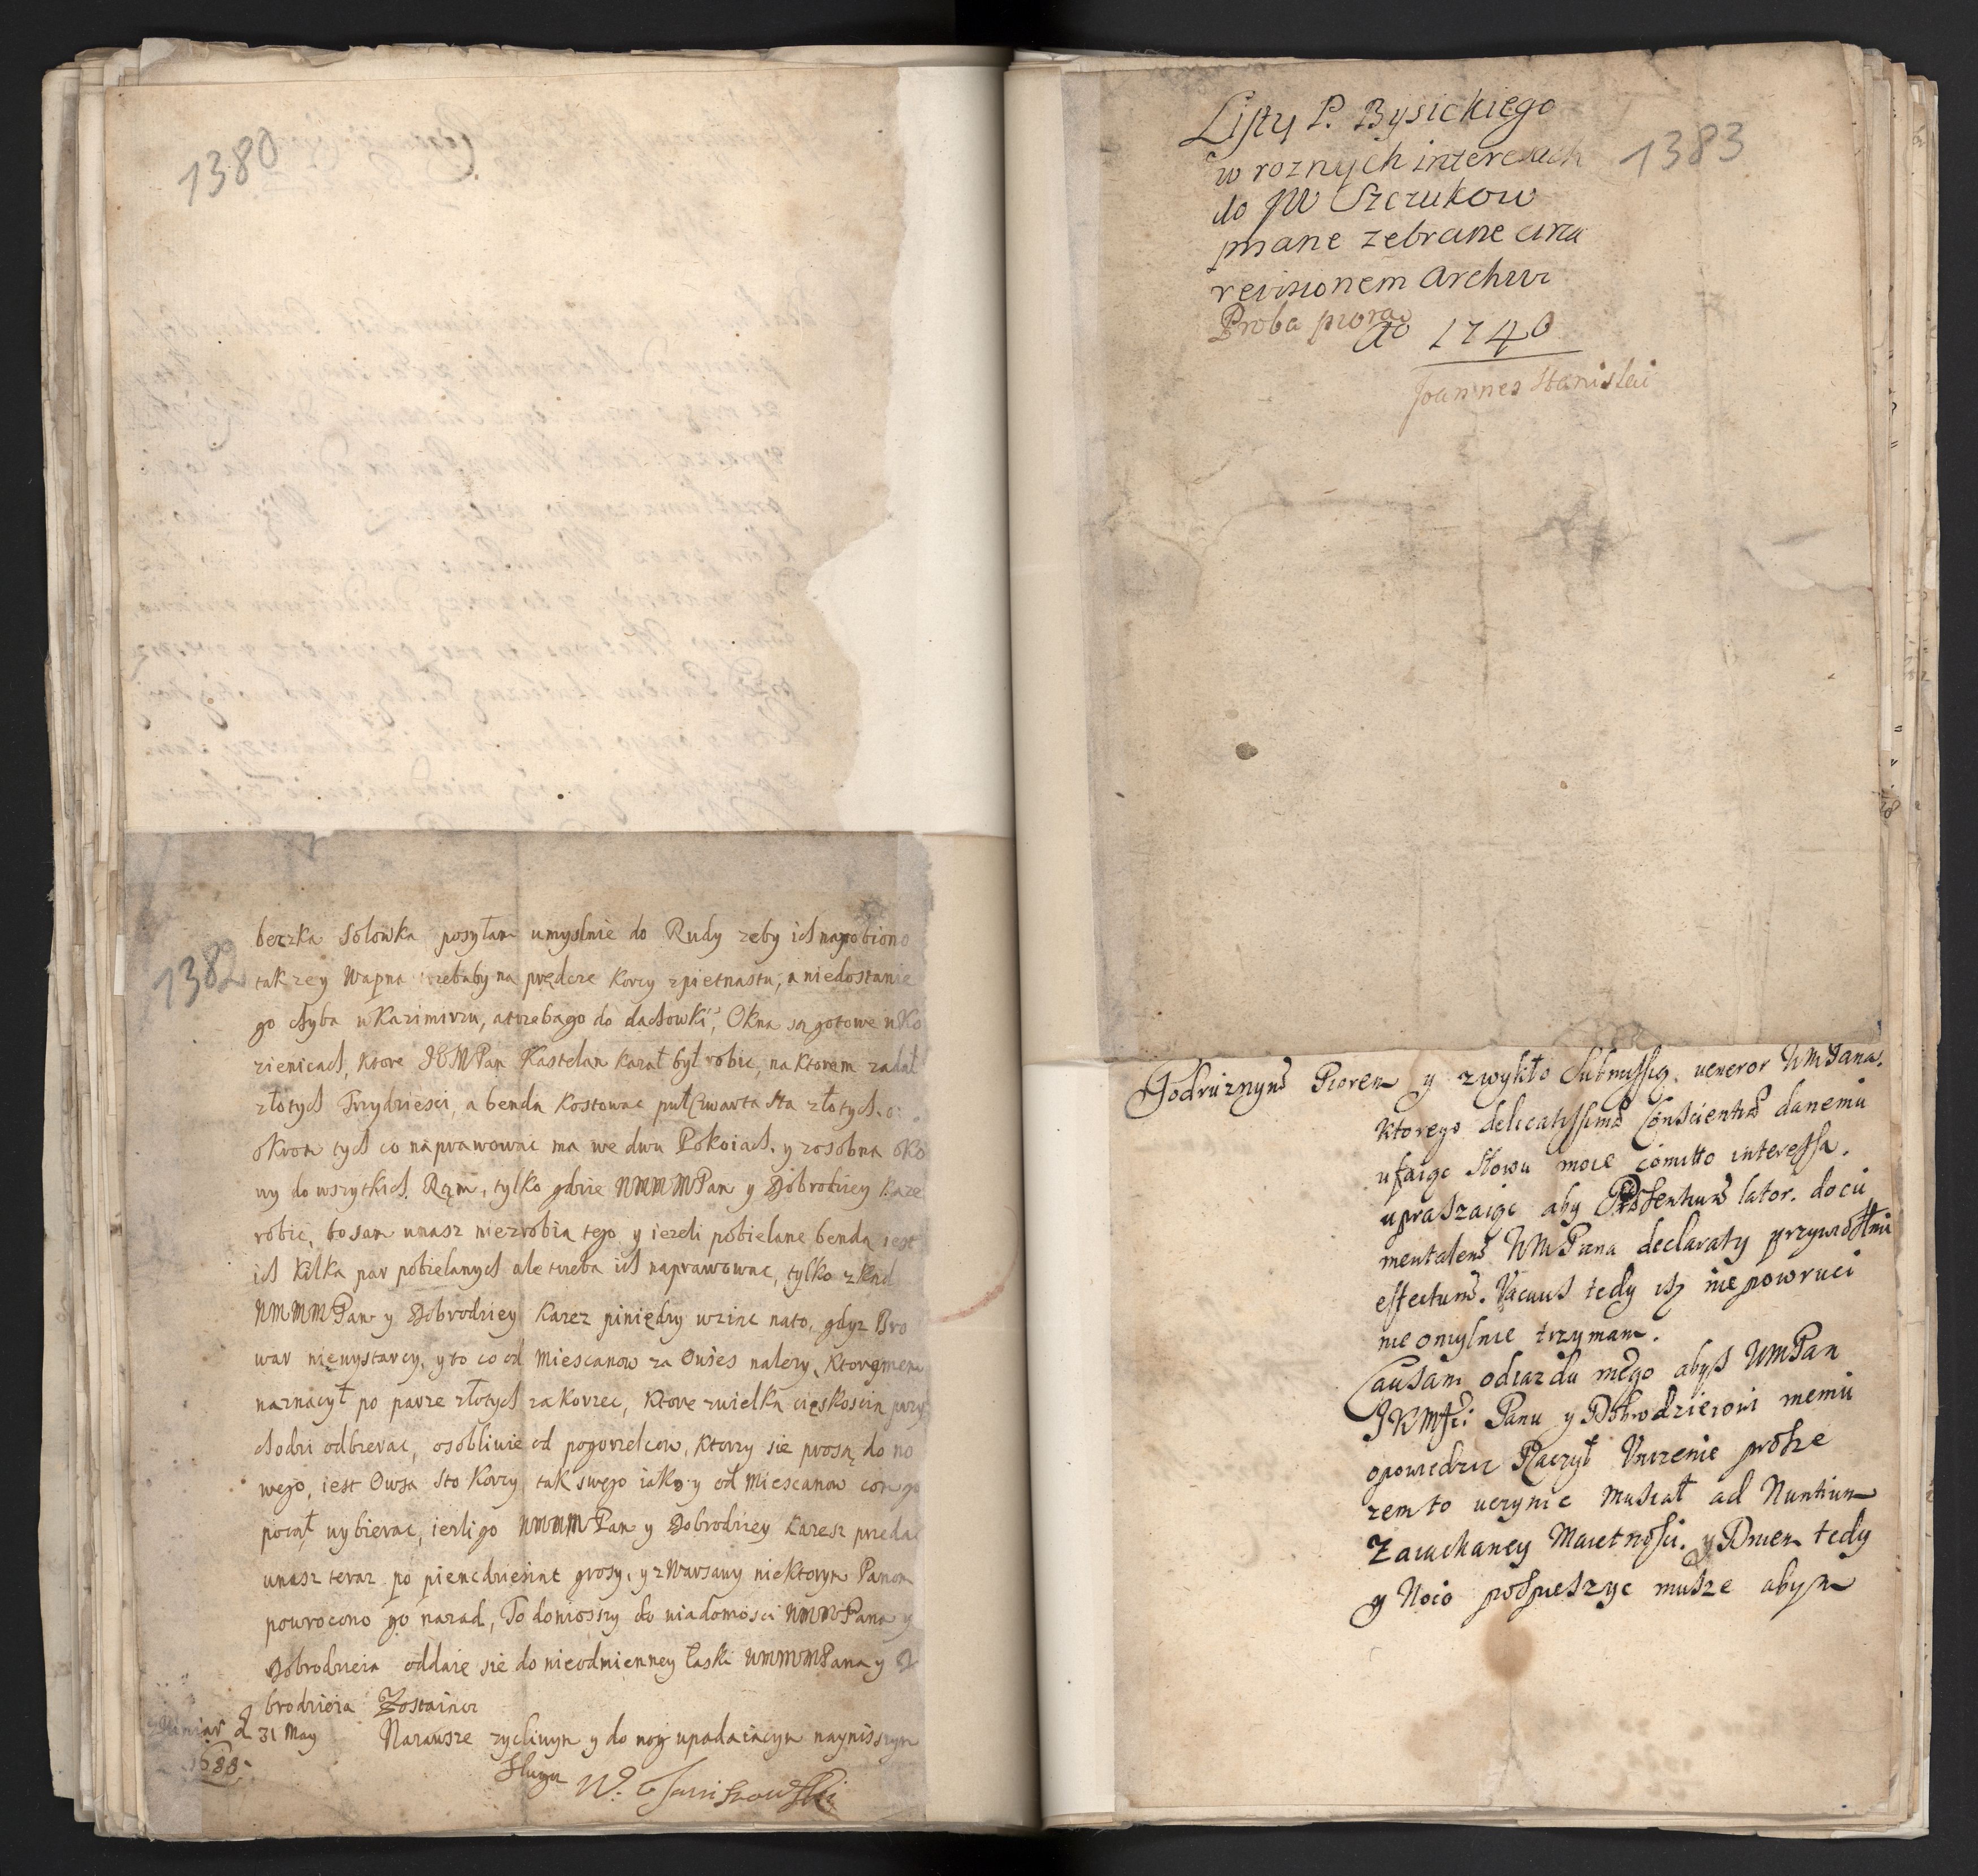 1380
1382
beczka solowka posyłam umyslnie do Rudy zeby ich narobiono
takzey Wapna trzebaby na prędcze Korcy zpietnastu, a niedostanie
go chyba w Kazimirzu, a trzeba go do dachowki, Okna są gotowe w Ko
zienicach, ktore JEMPan Kastelan kazał był robic, na ktorem zadał
złotych Trzydziesci, a benda kostowac puł czwarta sta złotych
okrom tych co naprawowac ma we dwu Pokoiach, y zosobna oko
wy do wszytkich Ram, tylko gdzie WMMMPan y Dobrodziey kaze
robic, bo sam unasz niezrobia tego y iezeli pobielane bendą iest
ich kilka par pobielanych ale trzeba ich naprawowac, tylko zkąd
WMMMPan y Dobrodziey karez piniędzy wziąc nato, gdyz Bro
war niewystarcy, y to co od Miescanow za Owies nalezy, ktorą mem
naznacył po parze złotych za korzec, ktore zwielką cięskoscia przy
chodzi odbierac, osobliwie od pogorzelcow, ktorzy sie proszą do no
wego, iest Owsa sto Korcy tak swego iako y od Miescanow com go
pocął wybierac, iezli go WMMMPan y Dobrodziey karesz przedac
unasz teraz po piencdziesiąt grosy, y z Warsawy niektorym Panom
powrocono go nazad, To doniossy do wiadomosci WMMPana y
Dobrodzieia oddaię się do nieodmienney łaski WMMMPana y Do
brodzieia Zostaiąc
d 31 May Nazawsze zycliwym y do nog upadaiącym naynissym
1688 Sługą
1383
Listy P. Bysickiego
w roznych interesach
do JW Szczukow
pisane zebrane circa
revisionem Archivi
Proba piora
Ao 1740
Joannes Stanislai
Podruznym Piorem y zwykło Submissią veneror WMPana.
ktorego delicatissimæ Conscientiæ danemu
ufaiąc słowu moie comitto interessa.
upraszaiąc aby Præsentium lator. docu
mentalem WMPana declaraty przyniosł mi
effectum. Vacuus tedy isz nie powruci
nie omylnie trzymam.
Causam odiazdu mego abyś WMPan
JKMści Panu y Dobrodzieiowi memu
opowiedziec Raczył Vnizenie prosze
zem to uczynic musiał ad Nuntium
Zaiachaney Maietnosci. y Dniem tedy
y Noco pospieszyc musze abym